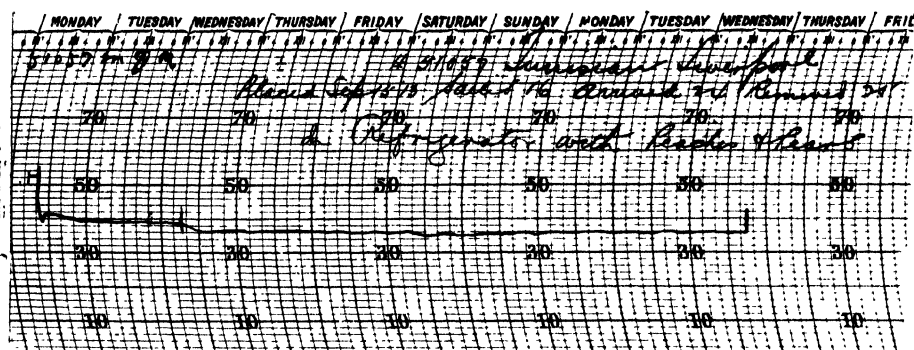 MONDAY TUESDAY WEDNESDAY THURSDAY FRIDAY SATURDAY SUNDAY MONDAY TUESDAY WEDNESDAY THURSDAY FRI
51057 Liverpool
Placed Sep 15 13 Sailed 16 Arrived 24 Removed 25
70 70 70 70 70 70
In Refrigerator with Peaches & Pears
50 50 50 50 50 50
30 30 30 30 30 30
10 10 10 10 10 10